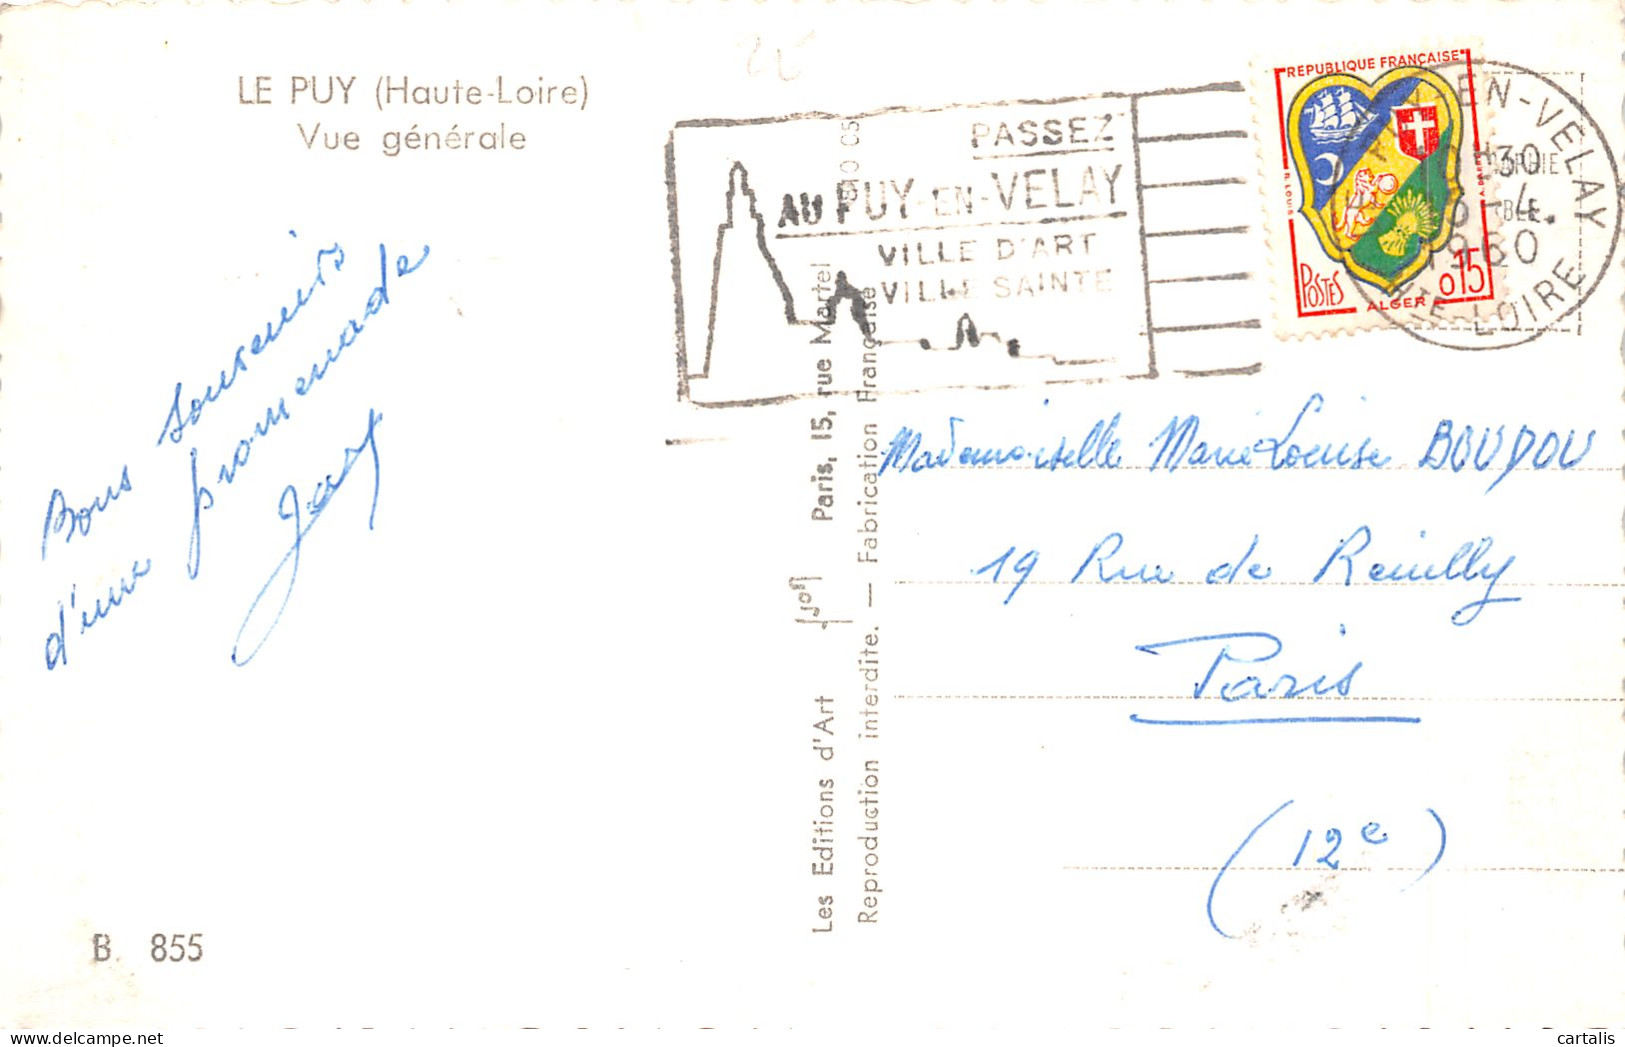 LE PUY (Haute-Loire)
Vue générale
Bons souvenirs
d'une promenade
B. 855
Les Editions d'Art Yvon Paris, 15, rue Martel
Reproduction interdite. — Fabrication Française
PASSEZ
AU PUY-EN-VELAY
VILLE D'ART
VILLE SAINTE
REPUBLIQUE FRANÇAISE
POSTES
ALGER
0,15
EN-VELAY
30
-4.
1960
HTE-LOIRE
Mademoiselle Marie Louise BOUDOU
19 Rue de Reuilly
Paris
(12e)
cartalis